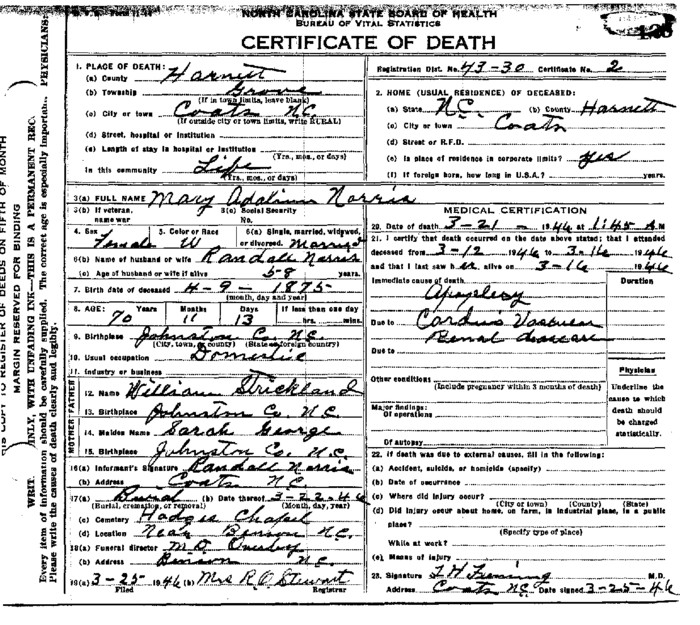 NORTH CAROLINA STATE BOARD OF HEALTH
BUREAU OF VITAL STATISTICS
CERTIFICATE OF DEATH
1. PLACE OF DEATH:
(a) County Harnett
(b) Township Grove
(If in town limits, leave blank)
(c) City or town Coats N.C.
(If outside city or town limits, write RURAL)
(d) Street, hospital or institution
(e) Length of stay in hospital or institution
(Yrs., mos., or days)
In this community Life
(Yrs., mos., or days)
Registration Dist. No. 43-30 Certificate No. 2
2. HOME (USUAL RESIDENCE) OF DECEASED:
(a) State N.C. (b) County Harnett
(c) City or town Coats
(d) Street or R.F.D.
(e) Is place of residence in corporate limits? yes
(f) If foreign born, how long in U.S.A.? years.
3(a) FULL NAME Mary Adaline Norris
3(b) If veteran, name war
3(c) Social Security No.
4. Sex Female
5. Color or Race W
6(a) Single, married, widowed, or divorced. Married
6(b) Name of husband or wife Randall Norris
(c) Age of husband or wife if alive 58 years.
7. Birth date of deceased 4-9-1875
(month, day and year)
8. AGE: Years 70 Months 11 Days 13 If less than one day hrs. mins.
9. Birthplace Johnston Co. N.C.
(City, town, or county) (State or foreign country)
10. Usual occupation Domestic
11. Industry or business
FATHER
12. Name William Strickland
13. Birthplace Johnston Co. N.C.
MOTHER
14. Maiden Name Sarah George
15. Birthplace Johnston Co. N.C.
16(a) Informant's Signature Randall Norris
(b) Address Coats N.C.
17(a) Burial (b) Date thereof 3-22-46
(Burial, cremation, or removal) (Month, day, year)
(c) Cemetery Hodges Chapel
(d) Location Near Benson N.C.
18(a) Funeral director M.O.
(b) Address Benson N.C.
19(a) 3-25 1946 (b) Mrs R.O. Stewart
Filed Registrar
MEDICAL CERTIFICATION
20. Date of death 3-21- 1946 at 1:45 A.M
21. I certify that death occurred on the date above stated; that I attended
deceased from 3-12 1946 to 3-16 1946
and that I last saw her alive on 3-16 1946
Immediate cause of death Duration
Apoplexy
Due to Cardio Vascular
Renal disease
Due to
Other conditions
(Include pregnancy within 3 months of death)
Major findings:
Of operations
Of autopsy
Physician
Underline the
cause to which
death should
be charged
statistically.
22. If death was due to external causes, fill in the following:
(a) Accident, suicide, or homicide (specify)
(b) Date of occurrence
(c) Where did injury occur?
(City or town) (County) (State)
(d) Did injury occur about home, on farm, in industrial place, in a public
place?
(Specify type of place)
While at work?
(e) Means of injury
23. Signature M.D.
Address Coats N.C. Date signed 3-25-46
MARGIN RESERVED FOR BINDING
WITH UNFADING INK—THIS IS A PERMANENT REC
Every item of information should be carefully supplied. The correct age is especially important. PHYSICIANS:
Please write the causes of death clearly and legibly.
COPY TO REGISTER OF DEEDS ON FIFTH OF MONTH